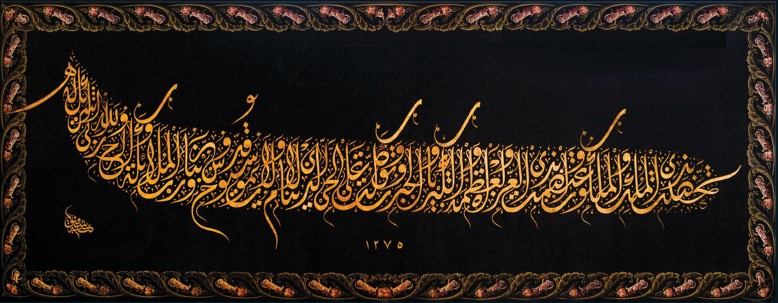 تحصنت بذي الملك والملكوت واعتصمت بذي العزة والعظمة والكبرياء والجبروت وتوكلت على الحي الذي لا ينام ولا يموت سبوح قدوس ربنا ورب الملائكة والروح
١٢٧٥